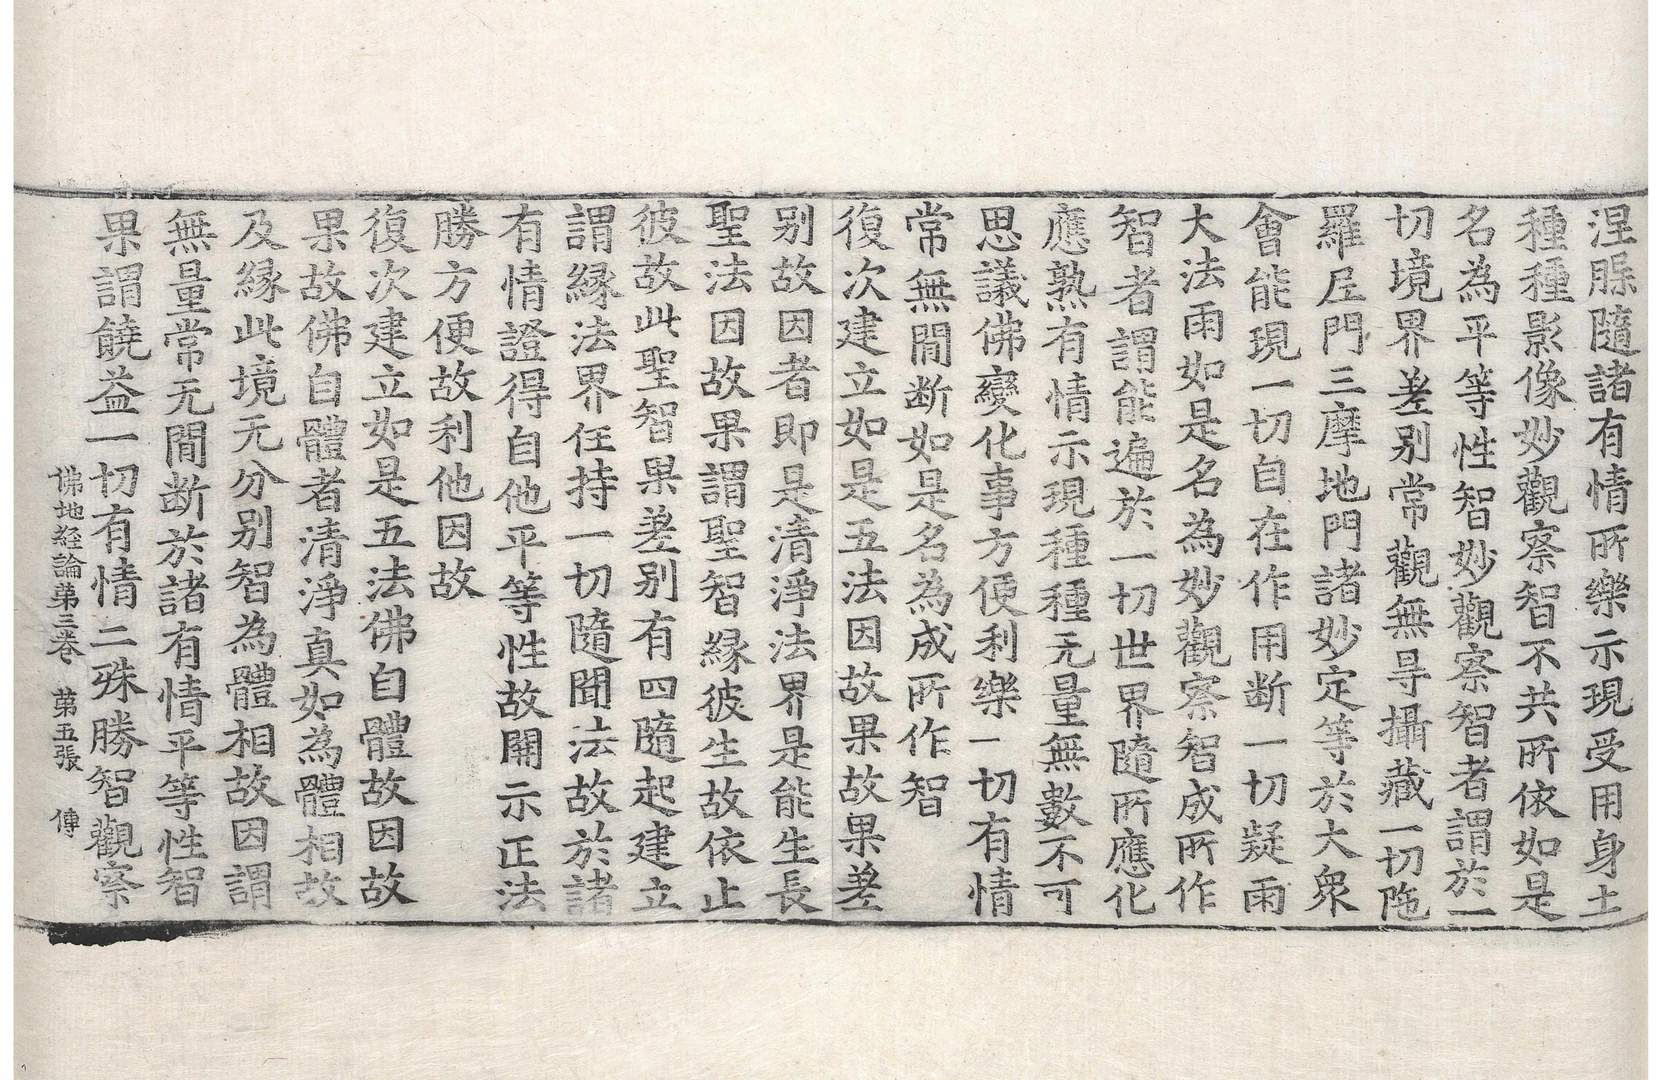 涅脲隨諸有情所樂示現受用身土
種種影像妙觀察智不共所依如是
名為平等性智妙觀察智者謂於一
切境界差别常觀無㝵攝藏一切陁
羅尼門三摩地門諸妙定等於大衆
會能現一切自在作用断一切疑雨
大法雨如是名為妙觀察智成所作
智者謂能遍於一切世界隨所應化
應熟有情示現種種无量無數不可
思議佛變化事方便利樂一切有情
常無間断如是名為成所作智
復次建立如是五法因故果故果差
别故因者即是清淨法界是能生長
聖法因故果謂聖智縁彼生故依止
彼故此聖智果差别有四隨起建立
謂縁法界任持一切隨聞法故於諸
有情證得自他平等性故開示正法
勝方便故利他因故
復次建立如是五法佛自體故因故
果故佛自體者清淨真如為體相故
及縁此境无分别智為體相故因謂
無量常无間断於諸有情平等性智
果謂饒益一切有情二殊勝智觀察
佛地経論第三巻　第五張　傳